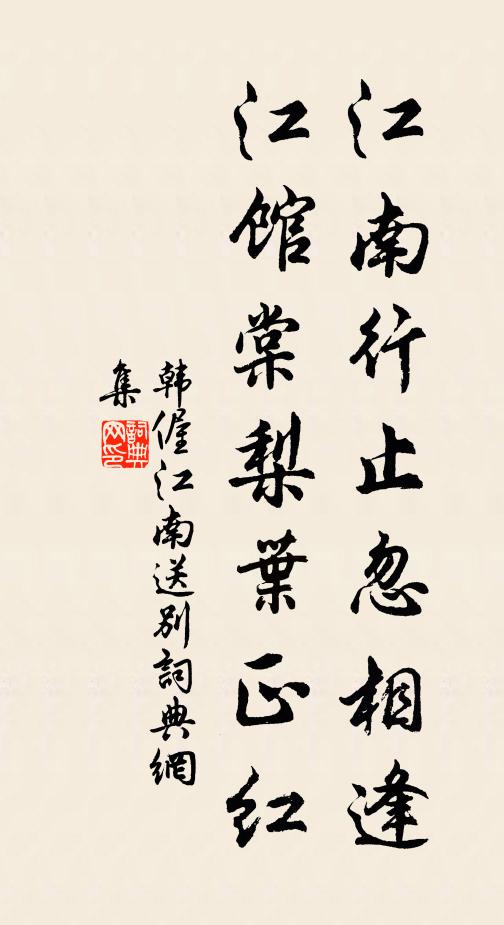 江南行止忽相逢
江馆棠梨葉正红
韩偓江南送别詞典網
集
詞典
网印